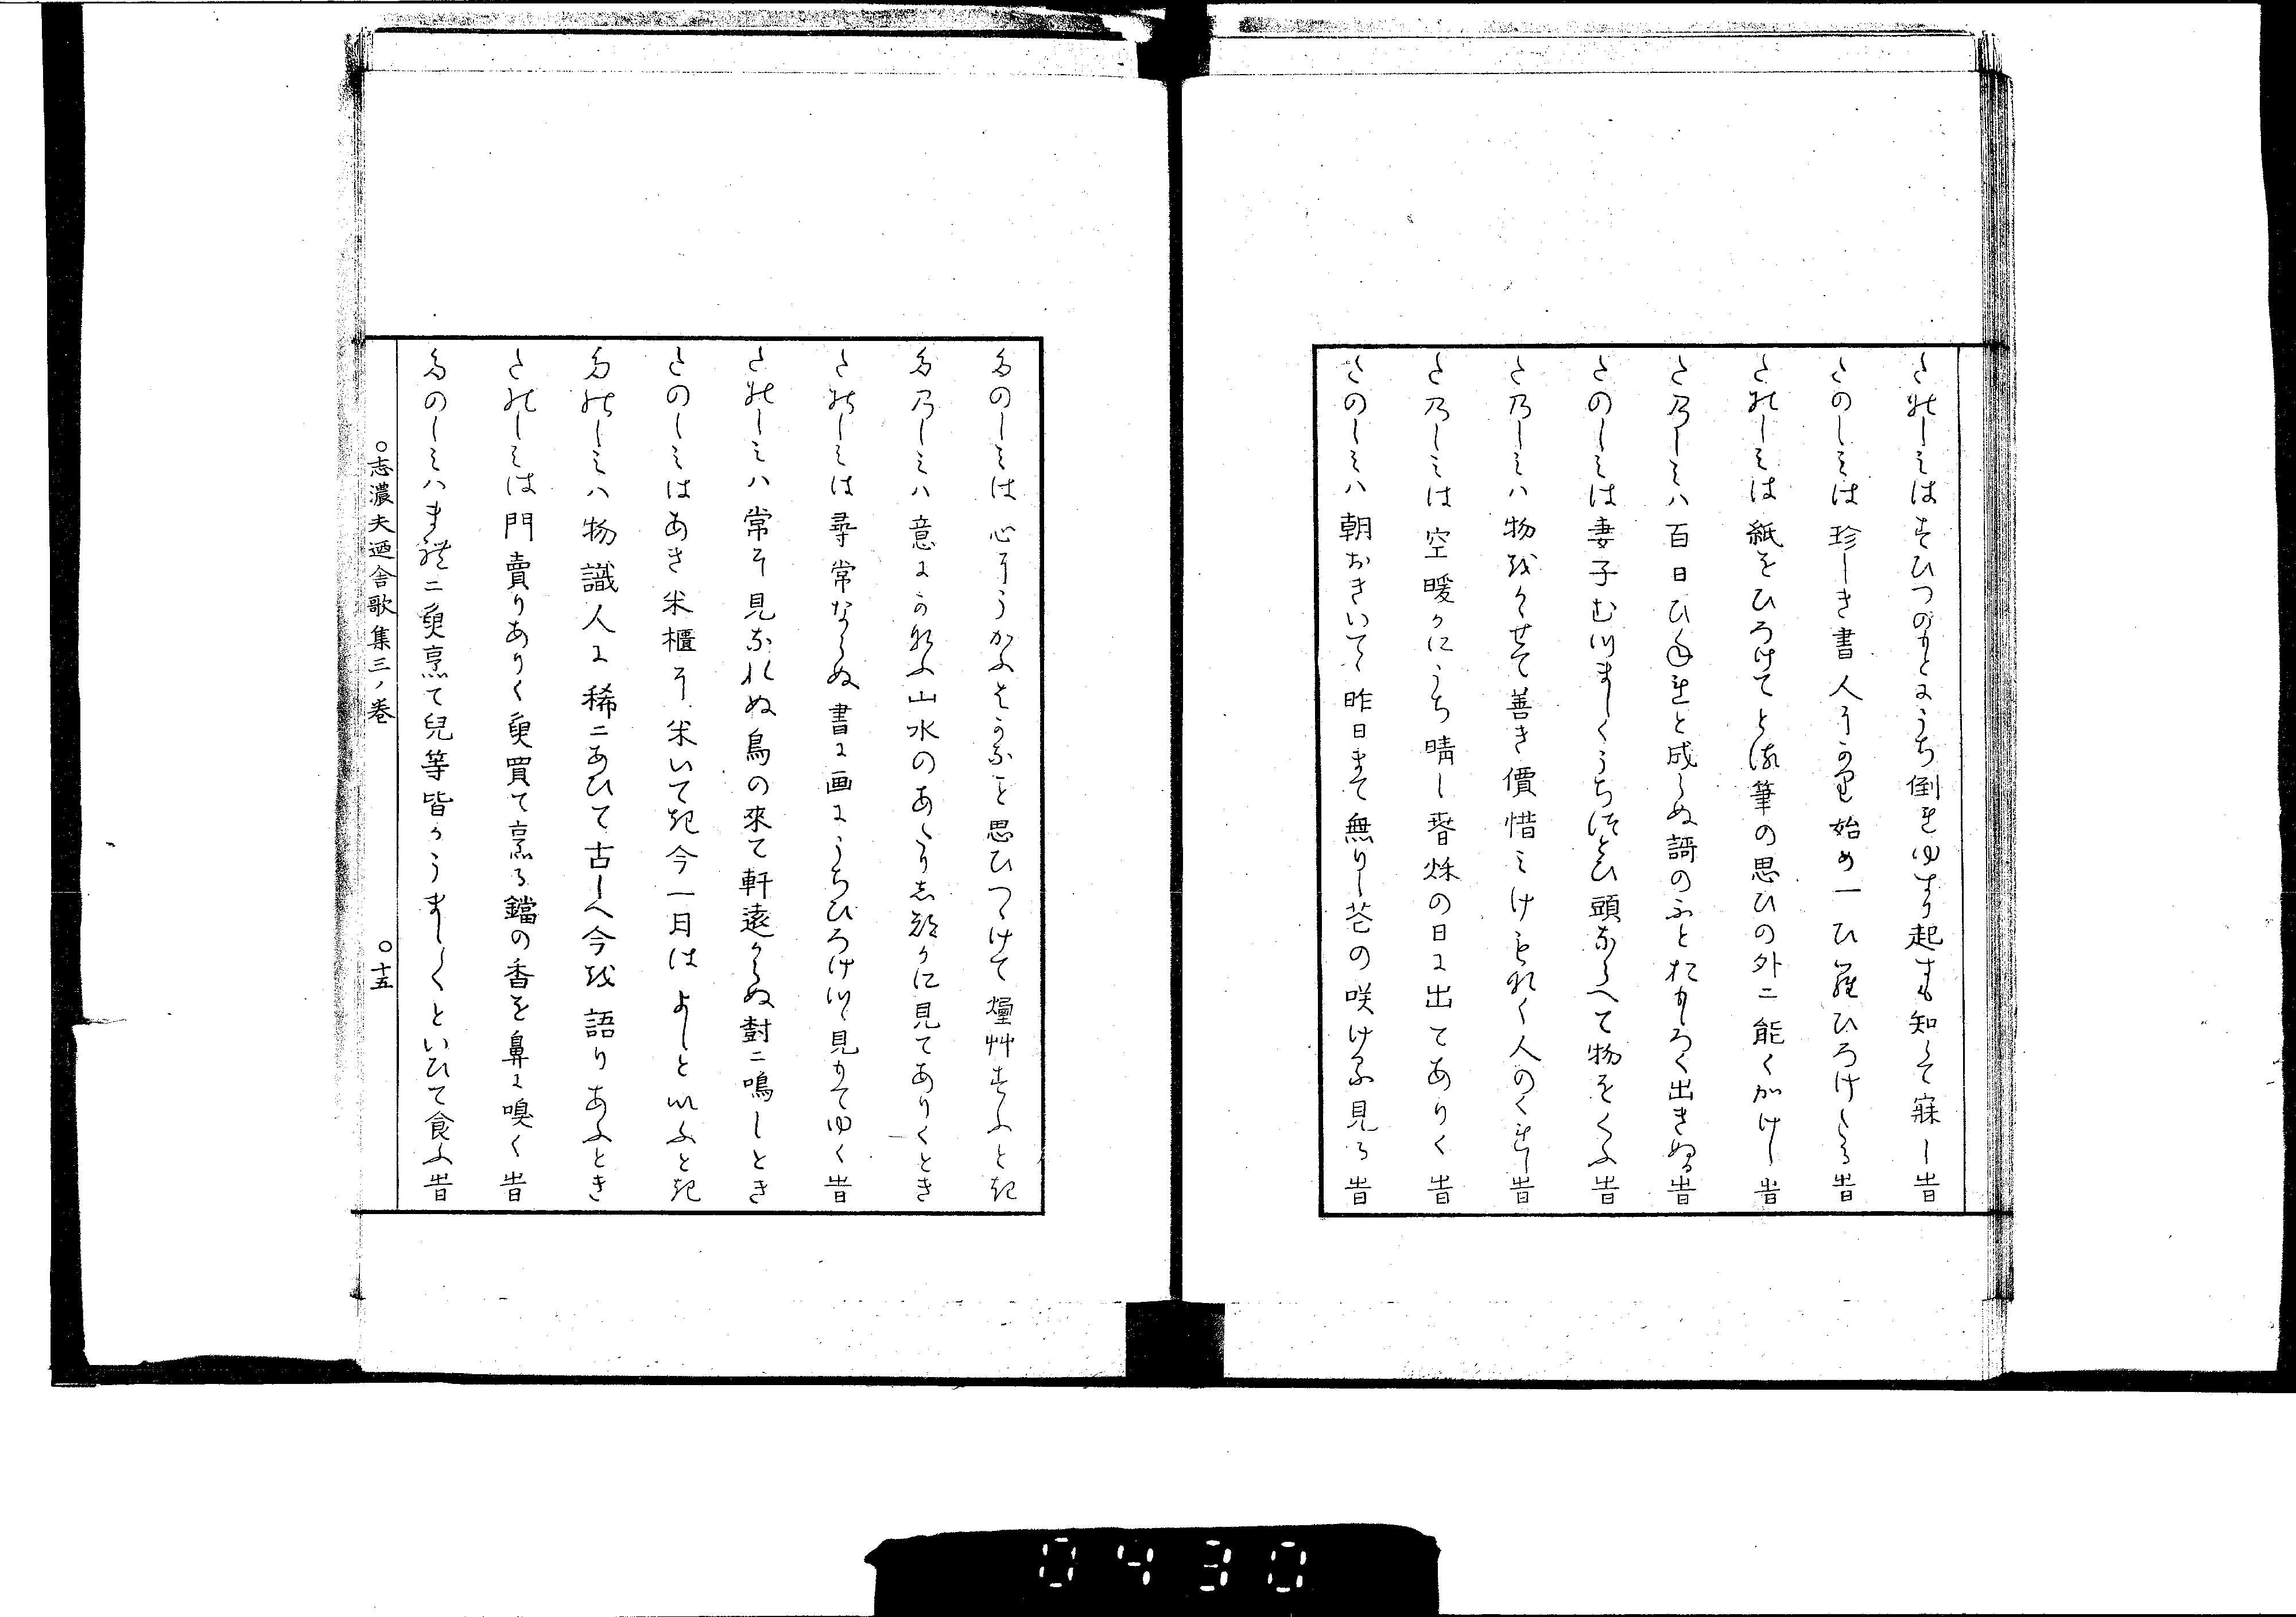 たのしみはすひつのもとにうち倒れゆすり起すも知らて寐し時
たのしみは珍しき書人にかり始め一ひらひろけたる時
たのしみは紙をひろけてとる筆の思ひの外ニ能くかけし時
たのしみハ百日ひねれと成らぬ謌のふとおもしろく出きぬる時
たのしみは妻子むつましくうちつとひ頭ならへて物をくふ時
たのしみハ物をかゝせて善き價惜ミけもなく人のくれし時
たのしみは空暖かにうち晴し春秋の日に出てありく時
たのしみハ朝おきいてゝ昨日まて無りし花の咲ける見る時
たのしみは心にうかふはかなこと思ひつゝけて煙艸すふとき
たのしみハ意にかなふ山水のあたりしつかに見てありくとき
たのしみは尋常ならぬ書に画にうちひろけつゝ見もてゆく時
たのしみハ常に見なれぬ鳥の來て軒遠からぬ樹ニ鳴しとき
たのしみはあき米櫃に米いてき今一月はよしといふとき
たのしみハ物識人に稀ニあひて古しへ今を語りあふとき
たのしみは門賣りありく魚買て烹る鐺の香を鼻に嗅く時
たのしみハまれニ魚烹て兒等皆かうましうましといひて食ふ時
○志濃夫廼舎歌集三ノ巻 ○十五
0430